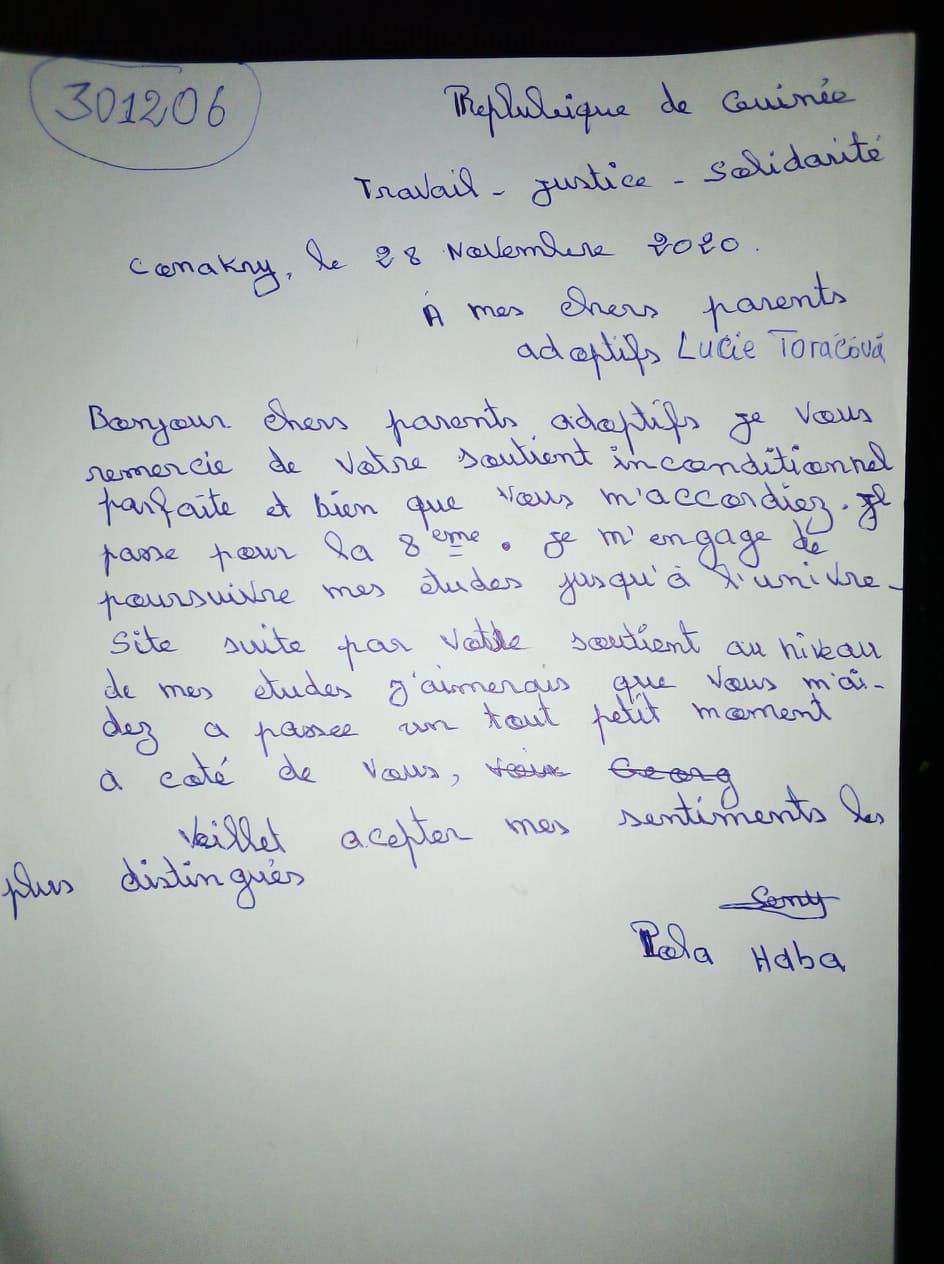 301206
Republuique de Guinée
Travail - justice - Solidarité
Conakry, le 28 Novembre 2020.
A mes chers parents
adoptifs Lucie Toráčová
Bonjour chers parents adoptifs je vous
remercie de votre soutient inconditionnel
parfaite et bien que vous m'accordiez. je
passe pour la 8 eme. je m'engage de
poursuivre mes études jusqu'à l'univre-
Site suite par votre soutient au niveau
de mes etudes j'aimerais que vous m'ai-
dez a passee un tout petit moment
a coté de vous, Georg
Veillet acepter mes sentiments les
plus distingués
Seny
Pola Haba